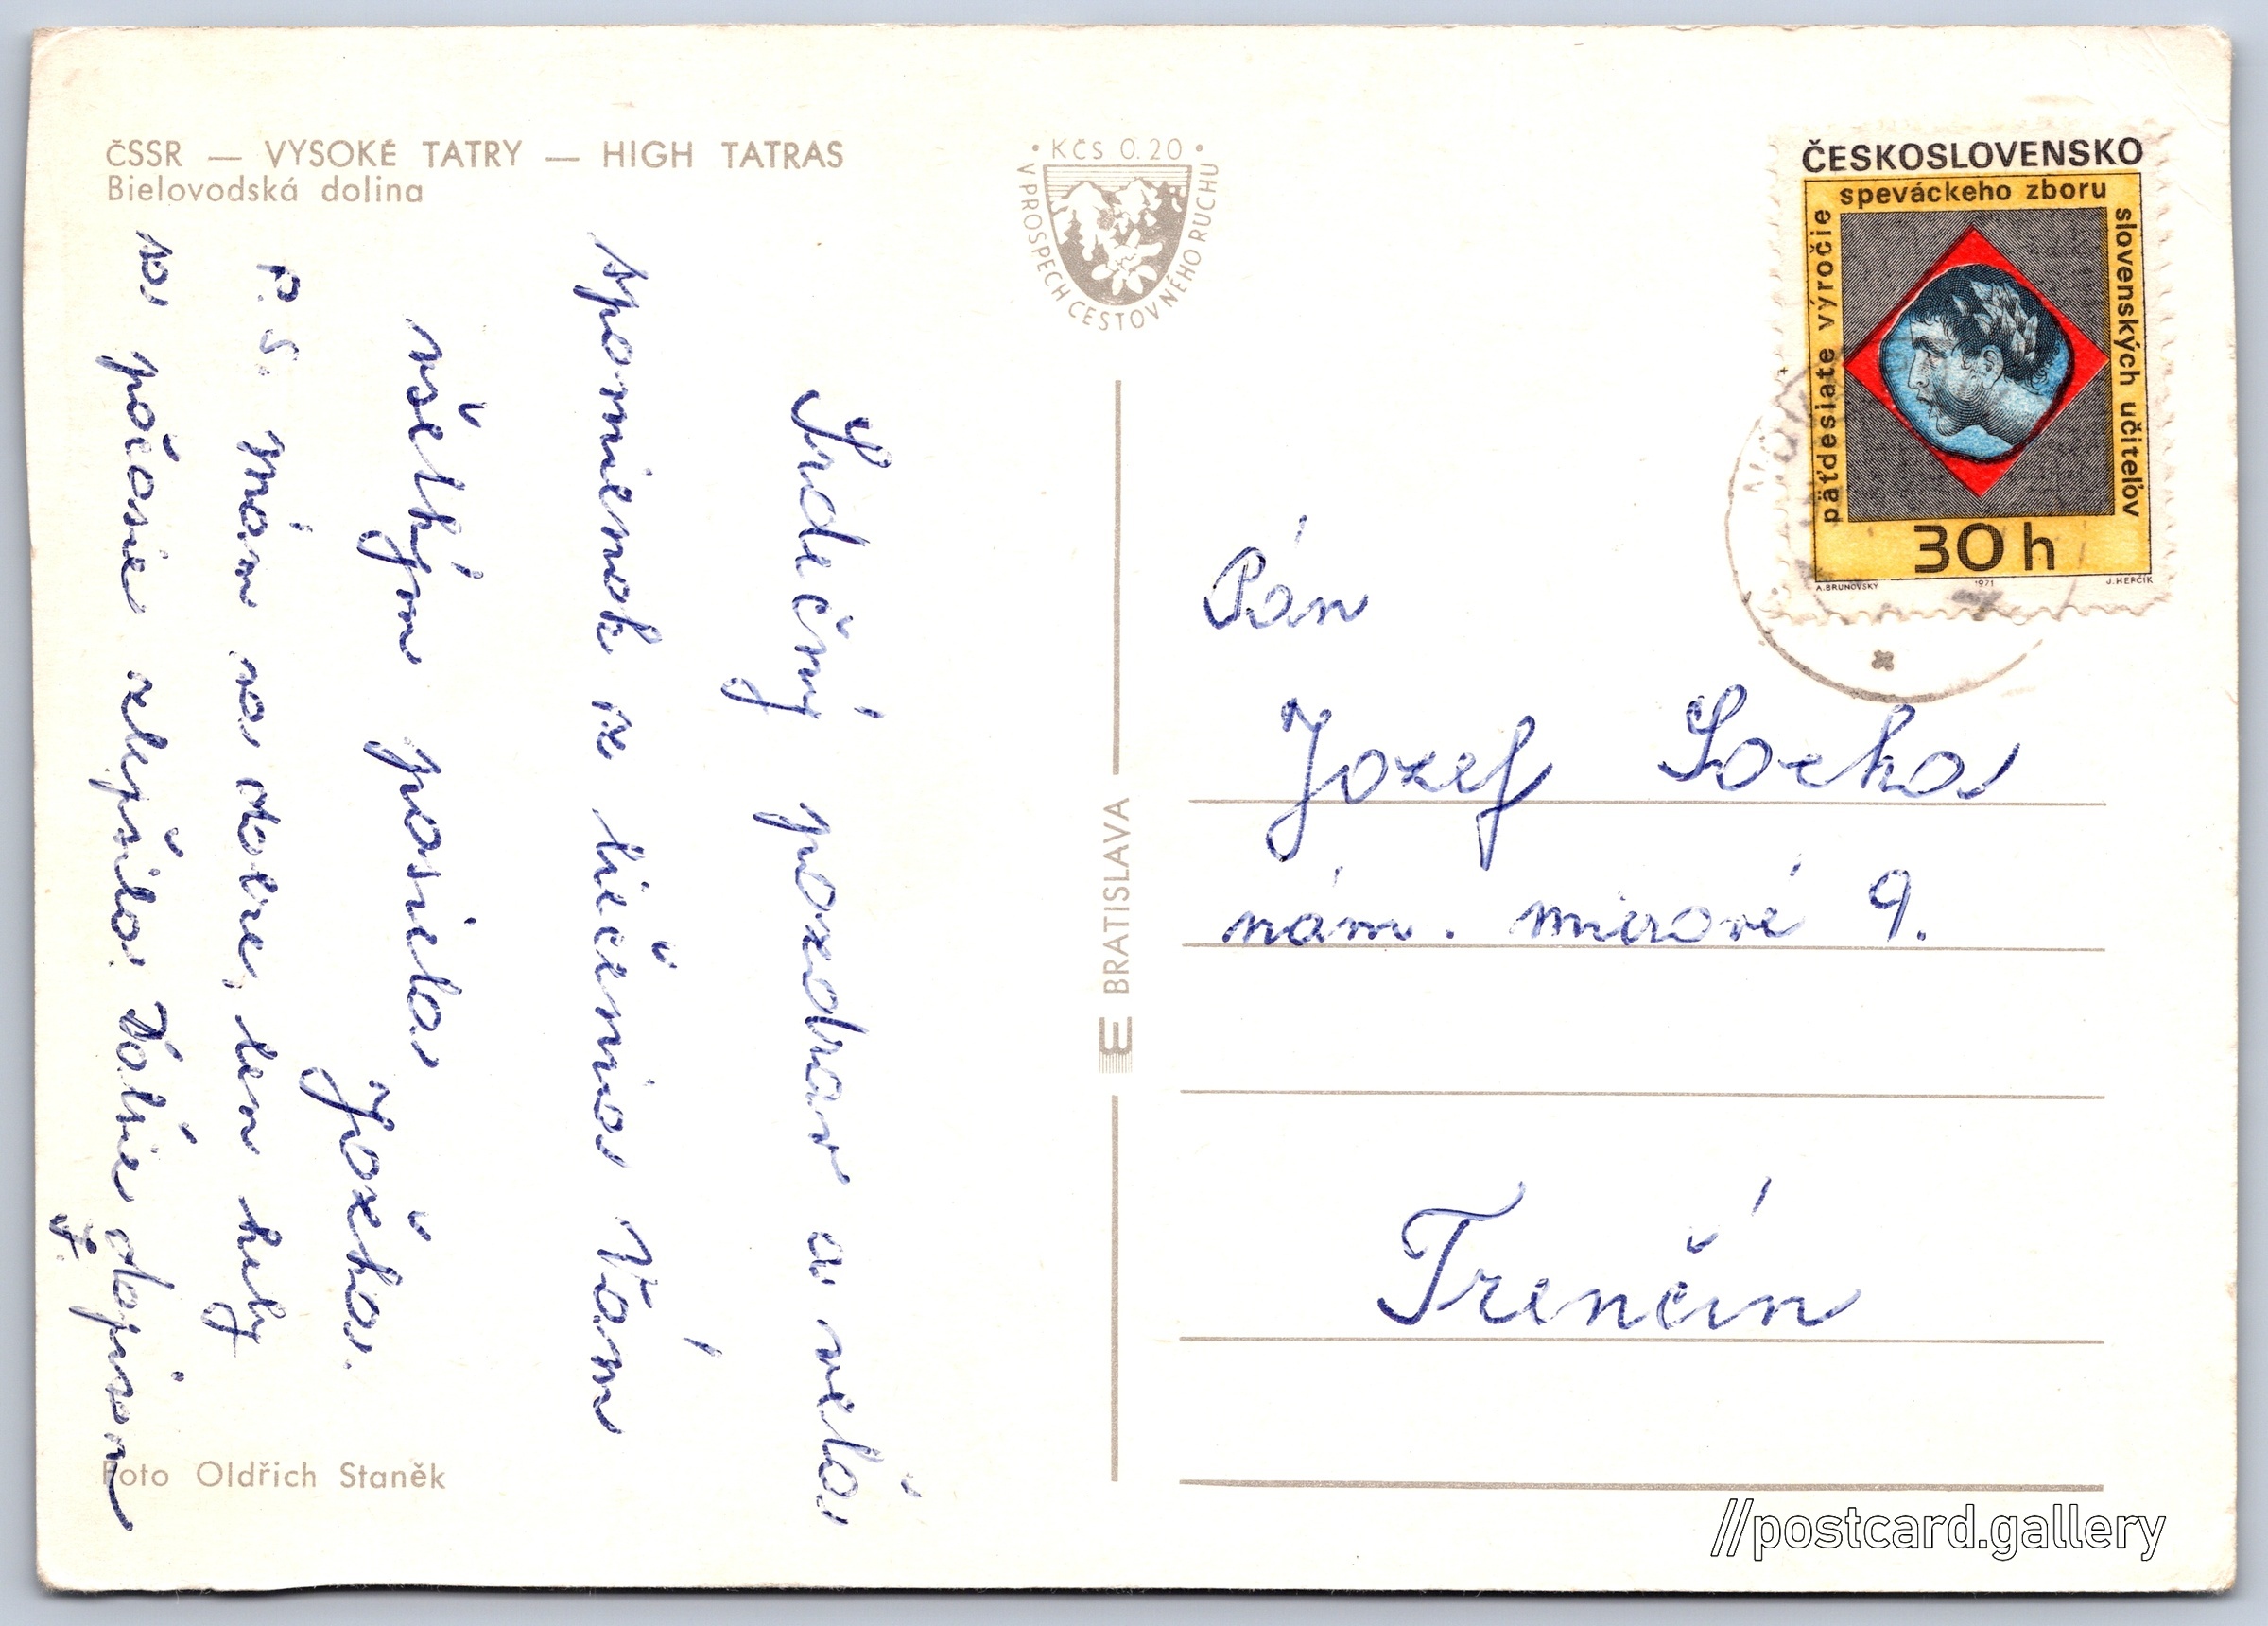 ČSSR — VYSOKÉ TATRY — HIGH TATRAS
Bielovodská dolina
Srdečný pozdrav a veľa
spomienok z liečenia Vám
všetkým posiela
Jožka.
P.S. Mám sa dobre, len keby
sa počasie zlepšilo. Ďalšie dopisom
J.
Foto Oldřich Staněk
• KČS 0.20 •
V PROSPECH CESTOVNÉHO RUCHU
BRATISLAVA
ČESKOSLOVENSKO
päťdesiate výročie
speváckeho zboru
slovenských učiteľov
30 h
A. BRUNOVSKÝ 1971 J. HERČÍK
Pán
Jozef Socha
nám. mierové 9.
Trenčín
//postcard.gallery